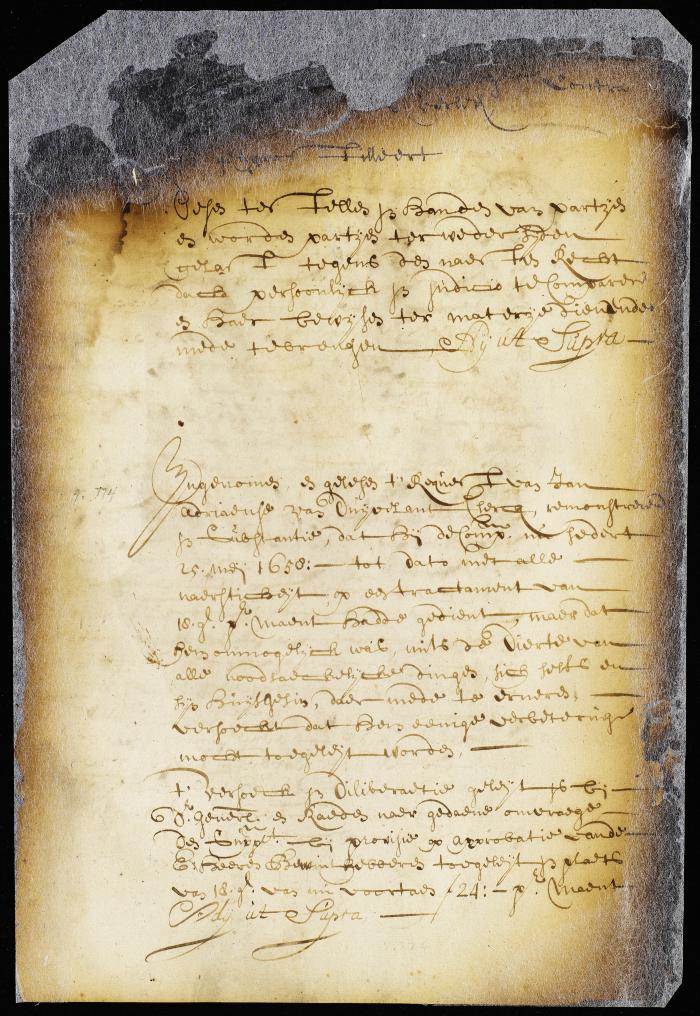 Contra
Tilleert
gesien ter rollen in handen van partijen
en worden partijen ter weder syden
gelast tegens den naesten Recht
dach persoonlijck in Judicio te Compareren
en haer bewysen ter materije dienende
mede te brengen Ady ut Supra
Ingenomen en gelesen t' Request van Jan
Adriaense van Duyvelant Clercq, remonstrerende
in Substantie, dat hij de Comp. nu sedert
25. meij 1658: tot dato met alle
naerstichheyt op een tractament van
18. gl. pr. maent hadde gedient, maer dat
hem onmogelijck was, mits de dierte van
alle noodsaeckelijcke dingen, sich selfs en
sijn huysgesin, daer mede te erneren,
versoeckt dat hem eenige verbeteringe
mocht toegeleyt worden,
t' versoeck in Deliberaetie geleyt is bij
dr. generl. en Raeden naer gedaene omvraege
den Supplt. bij provisie op approbatie vande
E: heeren Bewinthebberen toegeleyt in plaets
van 18. gl. van nu voortaen f 24:- pr. maent
Ady ut Supra